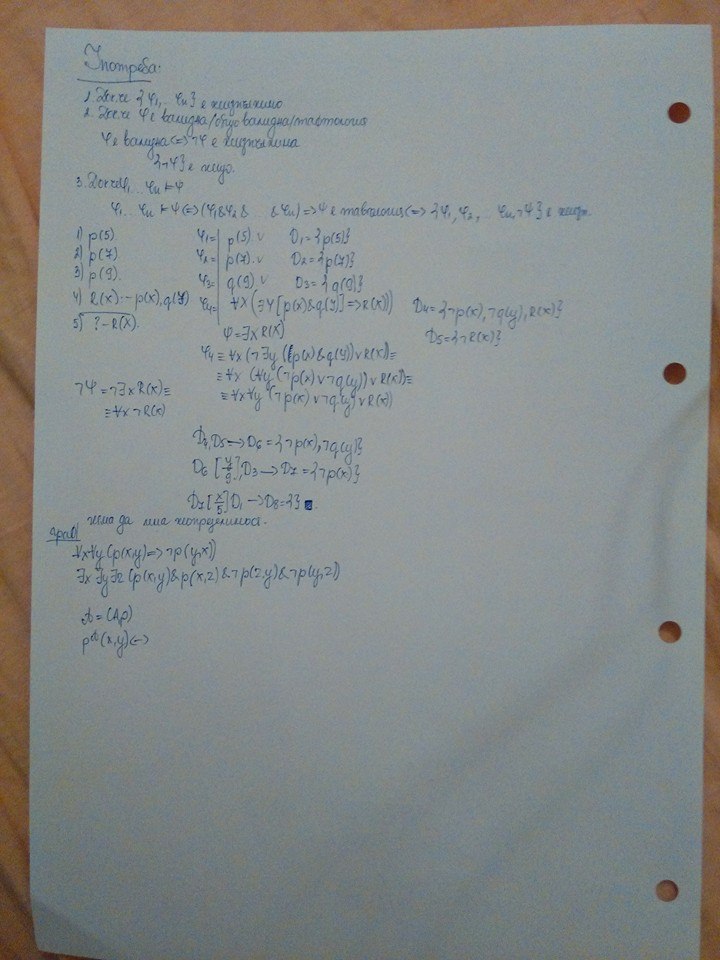 Употреба:
1. Док. че {φ₁, ... φₙ} е неизпълнимо
2. Док. че φ е валидна/общовалидна/тавтология
φ е валидна <=> ¬φ е неизпълнима
{¬φ} е неизп.
3. Док че φ₁ ... φₙ ⊨ ψ
φ₁ ... φₙ ⊨ ψ <=> (φ₁ & φ₂ & ... & φₙ) => ψ е тавтология <=> {φ₁, φ₂, ... φₙ, ¬ψ} е неизп.
1) p(5). φ₁ = p(5). ∨ D₁ = {p(5)}
2) p(7). φ₂ = p(7). ∨ D₂ = {p(7)}
3) p(9). φ₃ = q(9). ∨ D₃ = {q(9)}
4) R(x):-p(x),q(y) φ₄ = ∀x(∃y[p(x)&q(y)] => R(x)) D₄ = {¬p(x), ¬q(y), R(x)}
5) ?-R(x). ψ = ∃x R(x) D₅ = {¬R(x)}
φ₄ ≡ ∀x(¬∃y(p(x)&q(y)) ∨ R(x)) ≡
≡ ∀x (∀y(¬p(x)∨¬q(y)) ∨ R(x)) ≡
¬ψ = ¬∃x R(x) ≡ ≡ ∀x∀y (¬p(x)∨¬q(y) ∨ R(x))
≡ ∀x ¬R(x)
D₄, D₅ → D₆ = {¬p(x), ¬q(y)}
D₆ [y/9], D₃ → D₇ = {¬p(x)}
D₇ [x/5] D₁ → D₈ = {} ■
няма да има неопределеност.
∀x∀y(p(x,y) => ¬p(y,x))
∃x∃y∃z(p(x,y)&p(x,z)&¬p(z,y)&¬p(y,z))
A = (A,p)
pᴬ(x,y) <->